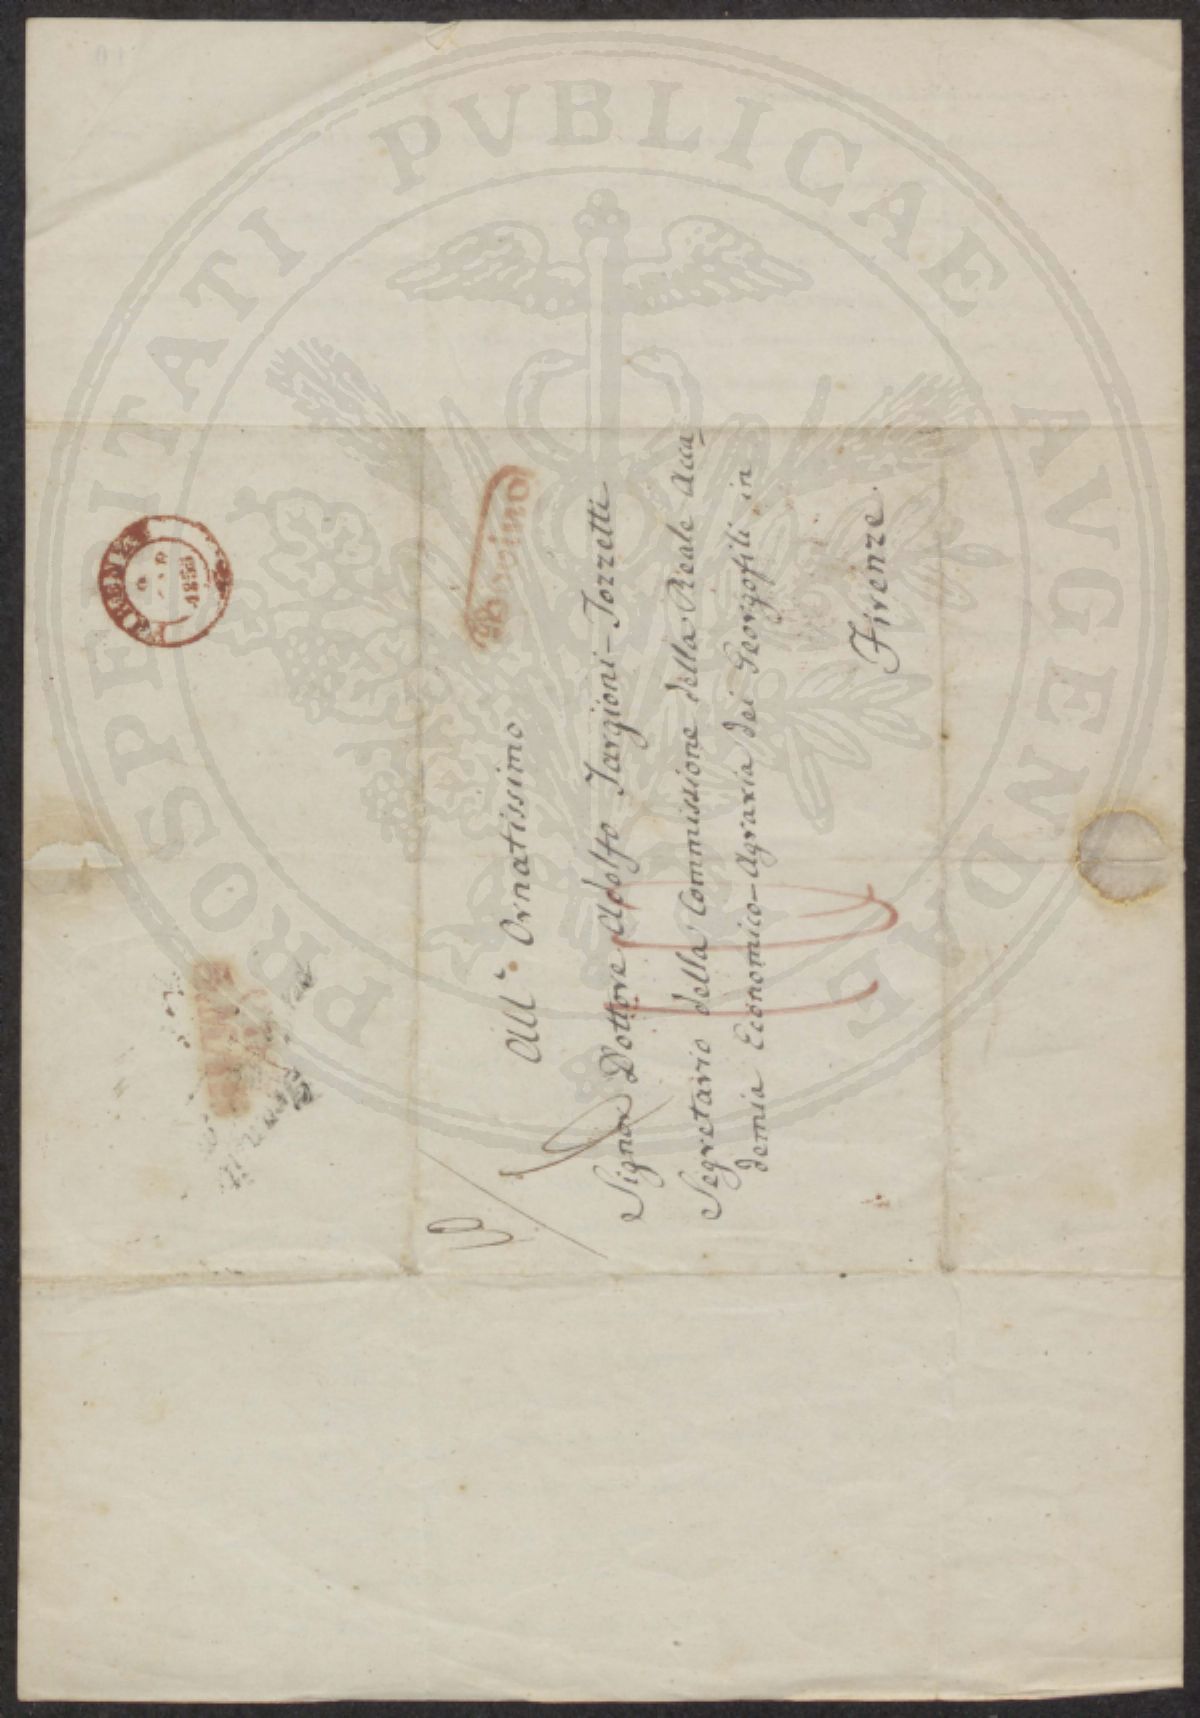 PROSPERITATI PVBLICAE AVGENDAE
FIRENZE
1853
All' Ornatissimo
Signor Dottore Adolfo Targioni-Tozzetti
Segretario della Commissione della Reale Acca-
demia Economico-Agraria dei Georgofili in
Firenze.